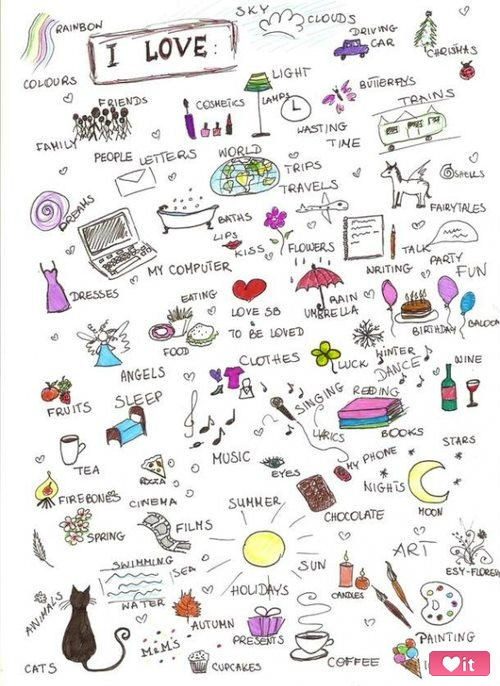 RAINBOW
SKY
CLOUDS
I LOVE:
DRIVING
CAR
CHRISMAS
COLOURS
LIGHT
LAMPS
BUTTERFYS
FRIENDS
COSMETICS
TRAINS
WASTING
TIME
FAMILY
PEOPLE
LETTERS
WORLD
TRIPS
TRAVELS
SHELLS
FAIRYTALES
DREAMS
BATHS
LIPS
KISS
FLOWERS
TALK
WRITING
PARTY
FUN
MY COMPUTER
DRESSES
EATING
LOVE SB
TO BE LOVED
RAIN
UMBRELLA
BIRTHDAY
BALOON
FOOD
ANGELS
CLOTHES
LUCK
WINTER
DANCE
WINE
FRUITS
SLEEP
SINGING
REDING
LYRICS
BOOKS
TEA
PIZZA
MUSIC
EYES
MY PHONE
STARS
NIGHTS
MOON
FIREBONES
CINEMA
SUMMER
CHOCOLATE
SPRING
FILMS
SUN
ART
ESY-FLORESY
SWIMMING
SEA
WATER
HOLIDAYS
CANDLES
ANIMALS
AUTUMN
PRESENTS
PAINTING
M&M's
CATS
CUPCAKES
COFFEE
it